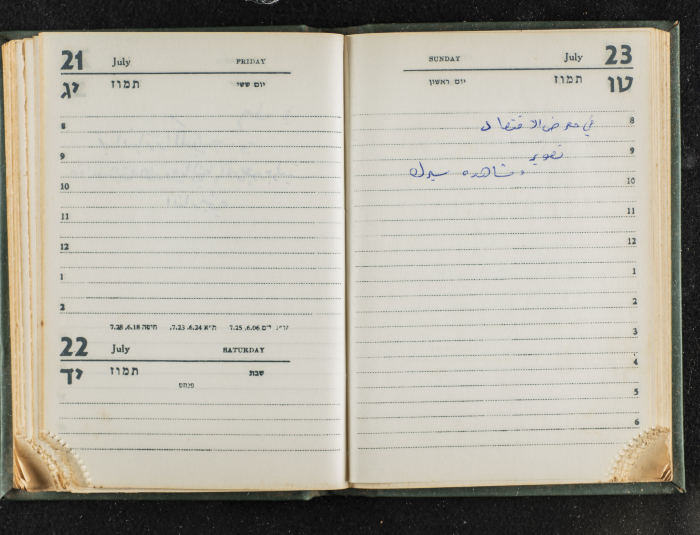 21 July FRIDAY
יג תמוז יום ששי
8
9
10
11
12
1
2
7.28 ,6.18 חיפה .7.23 ,6.24 ת״א .7.25 ,6.06
22 July SATURDAY
יד תמוז שבת
פנחס
SUNDAY July 23
יום ראשון תמוז טו
8
في معرض الاقتصاد
9
تصوير
ومشاهده سيرك
10
11
12
1
2
3
4
5
6